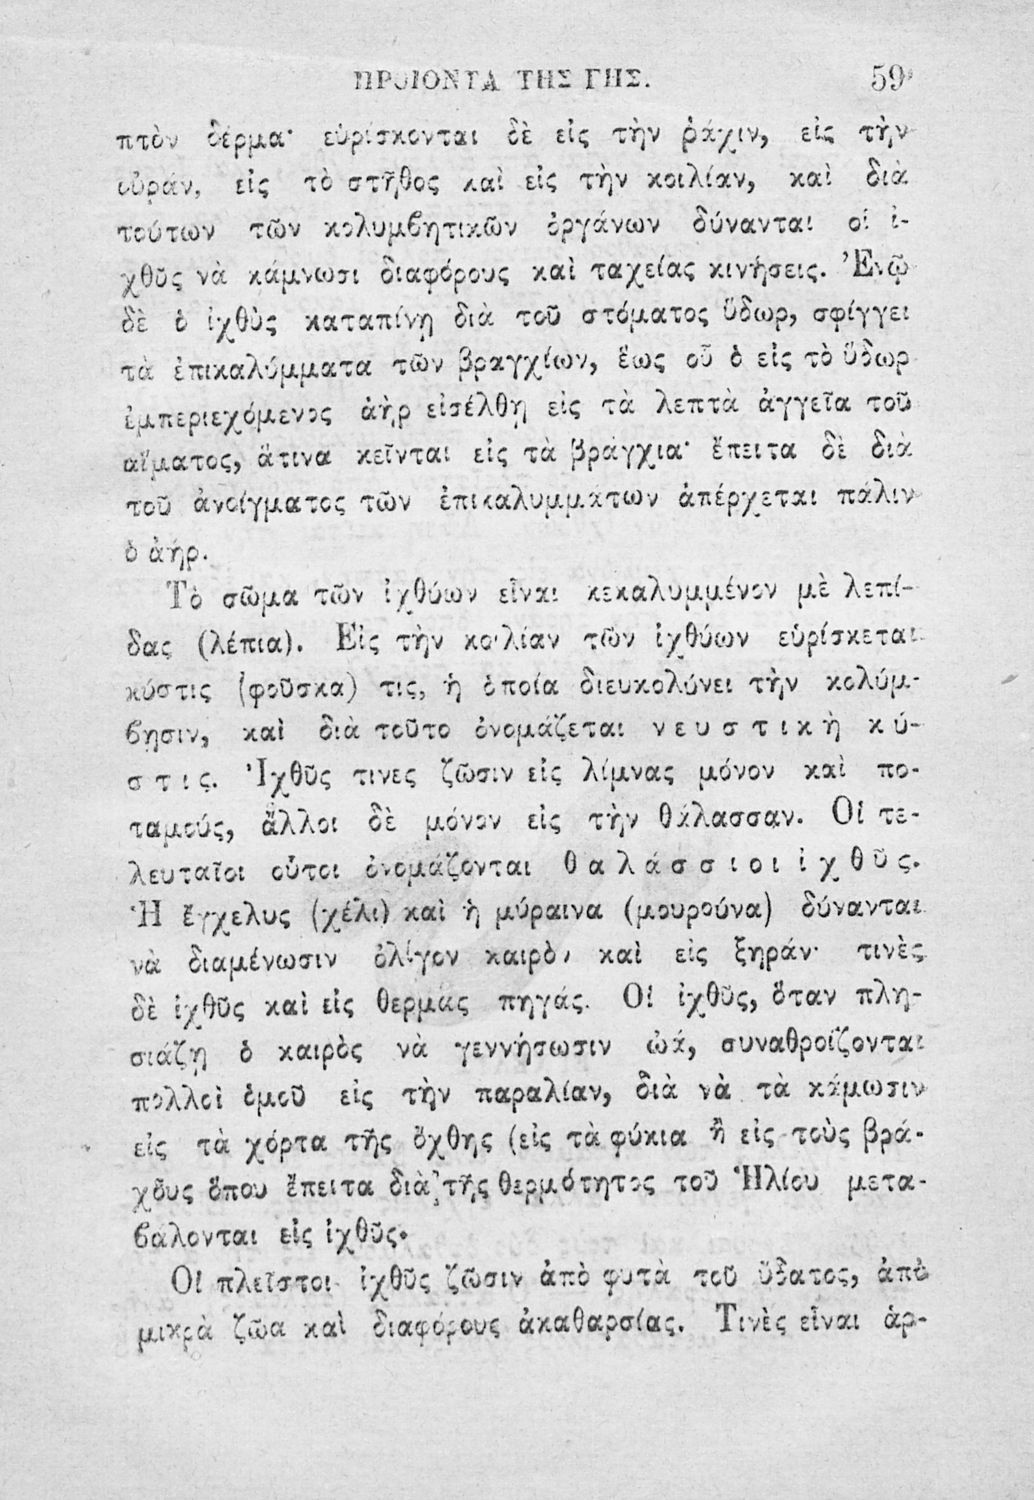 ΠΡΟΪΟΝΤΑ ΤΗΣ ΓΗΣ. 59
πτὸν δέρμα· εὑρίσκονται δὲ εἰς τὴν ῥάχιν, εἰς τὴν
οὐράν, εἰς τὸ στῆθος καὶ εἰς τὴν κοιλίαν, καὶ διὰ
τούτων τῶν κολυμβητικῶν ὀργάνων δύνανται οἱ ἰ-
χθῦς νὰ κάμνωσι διαφόρους καὶ ταχείας κινήσεις. Ἐνῷ
δὲ ὁ ἰχθὺς καταπίνῃ διὰ τοῦ στόματος ὕδωρ, σφίγγει
τὰ ἐπικαλύμματα τῶν βραγχίων, ἕως οὗ ὁ εἰς τὸ ὕδωρ
ἐμπεριεχόμενος ἀὴρ εἰσέλθῃ εἰς τὰ λεπτὰ ἀγγεῖα τοῦ
αἵματος, ἅτινα κεῖνται εἰς τὰ βράγχια· ἔπειτα δὲ διὰ
τοῦ ἀνοίγματος τῶν ἐπικαλυμμάτων ἀπέρχεται πάλιν
ὁ ἀήρ.
Τὸ σῶμα τῶν ἰχθύων εἶναι κεκαλυμμένον μὲ λεπί-
δας (λέπια). Εἰς τὴν κοιλίαν τῶν ἰχθύων εὑρίσκεται
κύστις (φοῦσκα) τις, ἡ ὁποία διευκολύνει τὴν κολύμ-
βησιν, καὶ διὰ τοῦτο ὀνομάζεται νευστικὴ κύ-
στις. Ἰχθῦς τινες ζῶσιν εἰς λίμνας μόνον καὶ πο-
ταμούς, ἄλλοι δὲ μόνον εἰς τὴν θάλασσαν. Οἱ τε-
λευταῖοι οὗτοι ὀνομάζονται θαλάσσιοι ἰχθῦς.
Ἡ ἔγχελυς (χέλι) καὶ ἡ μύραινα (μουρούνα) δύνανται
νὰ διαμένωσιν ὀλίγον καιρὸν καὶ εἰς ξηράν· τινὲς
δὲ ἰχθῦς καὶ εἰς θερμὰς πηγάς. Οἱ ἰχθῦς, ὅταν πλη-
σιάζῃ ὁ καιρὸς νὰ γεννήσωσιν ὠά, συναθροίζονται
πολλοὶ ὁμοῦ εἰς τὴν παραλίαν, διὰ νὰ τὰ κάμωσιν
εἰς τὰ χόρτα τῆς ὄχθης (εἰς τὰ φύκια ἢ εἰς τοὺς βρά-
χους ὅπου ἔπειτα διὰ τῆς θερμότητος τοῦ Ἡλίου μετα-
βάλονται εἰς ἰχθῦς.
Οἱ πλεῖστοι ἰχθῦς ζῶσιν ἀπὸ φυτὰ τοῦ ὕδατος, ἀπὸ
μικρὰ ζῶα καὶ διαφόρους ἀκαθαρσίας. Τινὲς εἶναι ἁρ-